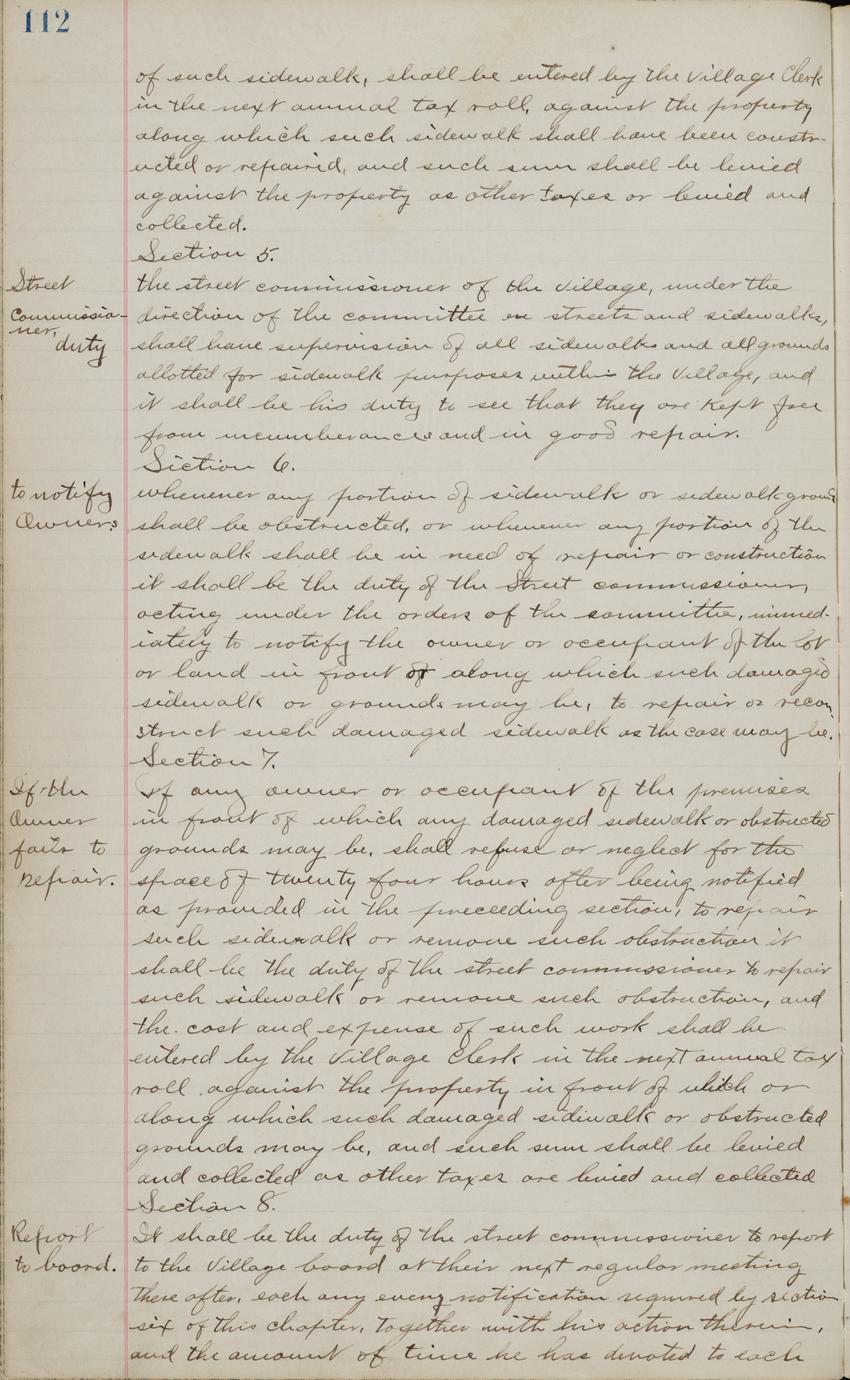 112
of such sidewalk, shall be entered by the Village Clerk
in the next annual tax roll, against the property
along which such sidewalk shall have been constr-
ucted or repaired, and such sum shall be levied
against the property as other taxes or levied and
collected.
Section 5.
Street
Commissio-
ner,
duty
the street commissioner of the Village, under the
direction of the committee on streets and sidewalks,
shall have supervision of all sidewalks and all grounds
allotted for sidewalk purposes within the Village, and
it shall be his duty to see that they are Kept free
from incumberances and in good repair.
Section 6.
to notify
Owners
whenever any portion of sidewalk or sidewalk ground
shall be obstructed, or whenever any portion of the
sidewalk shall be in need of repair or construction
it shall be the duty of the Street commissioner,
acting under the orders of the committe, immed-
iately to notify the owner or occupant of the lot
or land in front or along which such damaged
sidewalk or grounds may be, to repair or recon
struct such damaged sidewalk as the case may be.
Section 7.
If the
Owner
fails to
repair.
If any owner or occupant of the premises
in front of which any damaged sidewalk or obstructed
grounds may be, shall refuse or neglect for the
space of twenty four hours after being notified
as provided in the preceeding section, to repair
such sidewalk or remove such obstruction it
shall be the duty of the street commissioner to repair
such sidewalk or remove such obstruction, and
the cost and expense of such work shall be
entered by the Village Clerk in the next annual tax
roll against the property in front of which or
along which such damaged sidewalk or obstructed
grounds may be, and such sum shall be levied
and collected as other taxes are levied and collected
Section 8.
Report
to board.
It shall be the duty of the street commissioner to report
to the Village board at their next regular meeting
there after, each any every notification required by section
six of this chapter, together with his action therein,
and the amount of time he has devoted to each